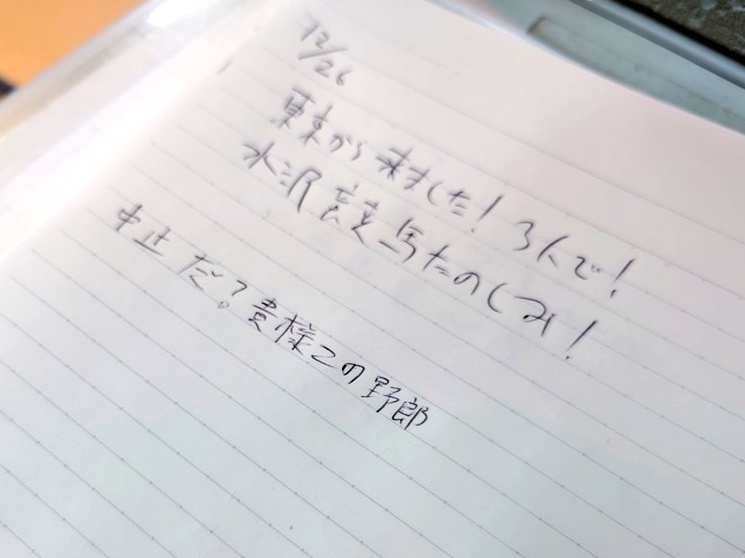 12/26
東京から来ました！3人で！
水沢競馬たのしみ！
中止だ？貴様この野郎